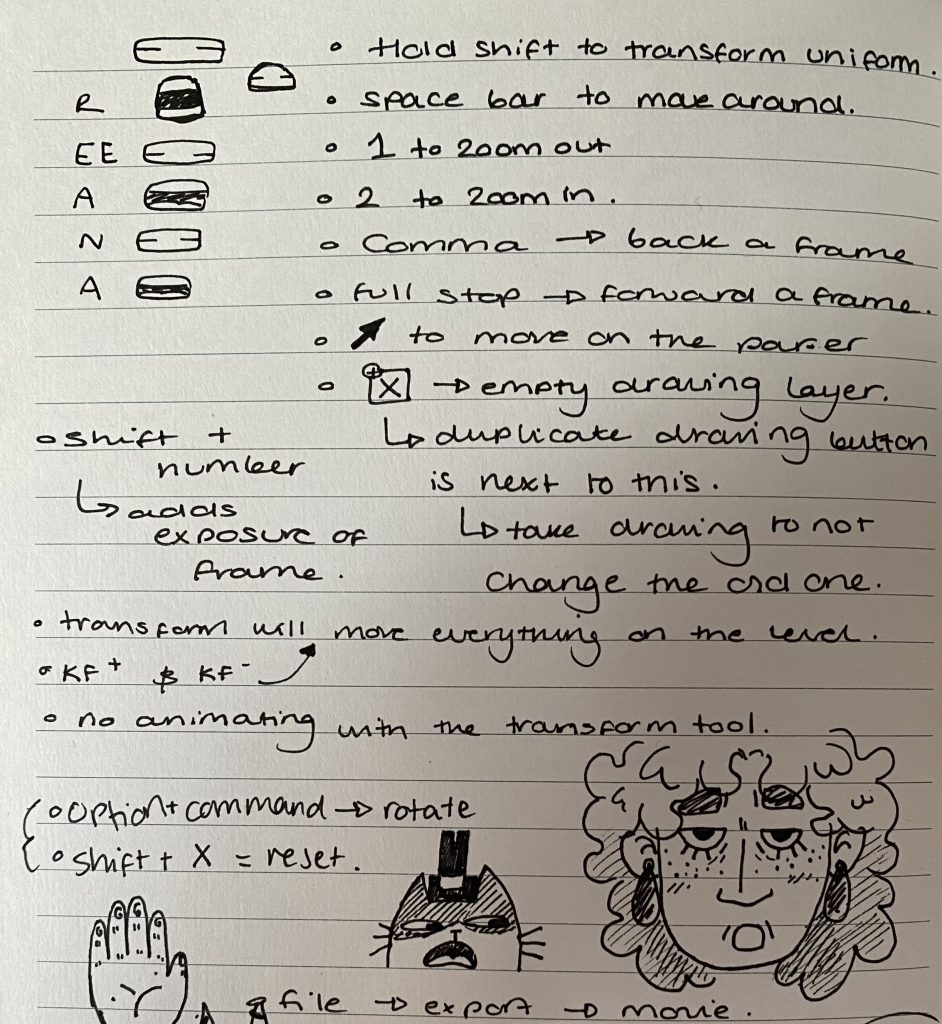 • Hold shift to transform uniform.
R
• space bar to move around.
EE
• 1 to zoom out
A
• 2 to zoom in.
N
• Comma → back a frame
A
• full stop → forward a frame.
• ↗ to move on the paper
• X → empty drawing layer.
• shift +
number
↳ duplicate drawing button
is next to this.
↳ adds
exposure of
frame.
↳ take drawing to not
change the old one.
• transform will move everything on the level.
• KF + & KF -
• no animating with the transform tool.
• option + command → rotate
• shift + X = reset.
G G G G
file → export → movie.